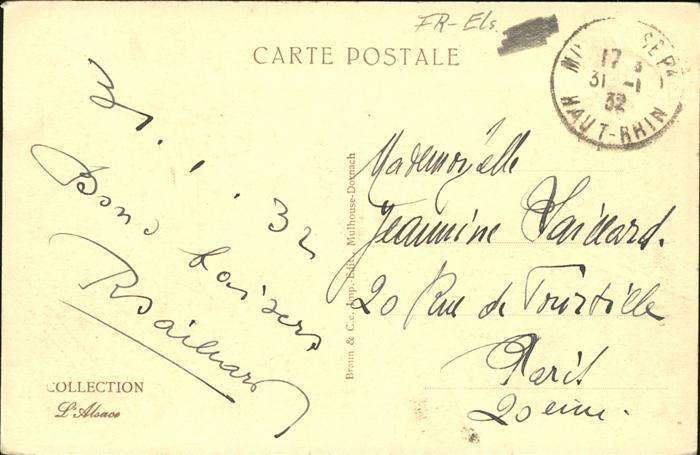 FR-Els.
CARTE POSTALE
17
31 -1
32
HAUT-RHIN
31.1.32
Bons baisers
Mademoiselle
Jeannine Vaillard.
20 Rue de Tourville
Paris
20eme.
Braun & Cie, Imp.-Edit., Mulhouse-Dornach
COLLECTION
L'Alsace